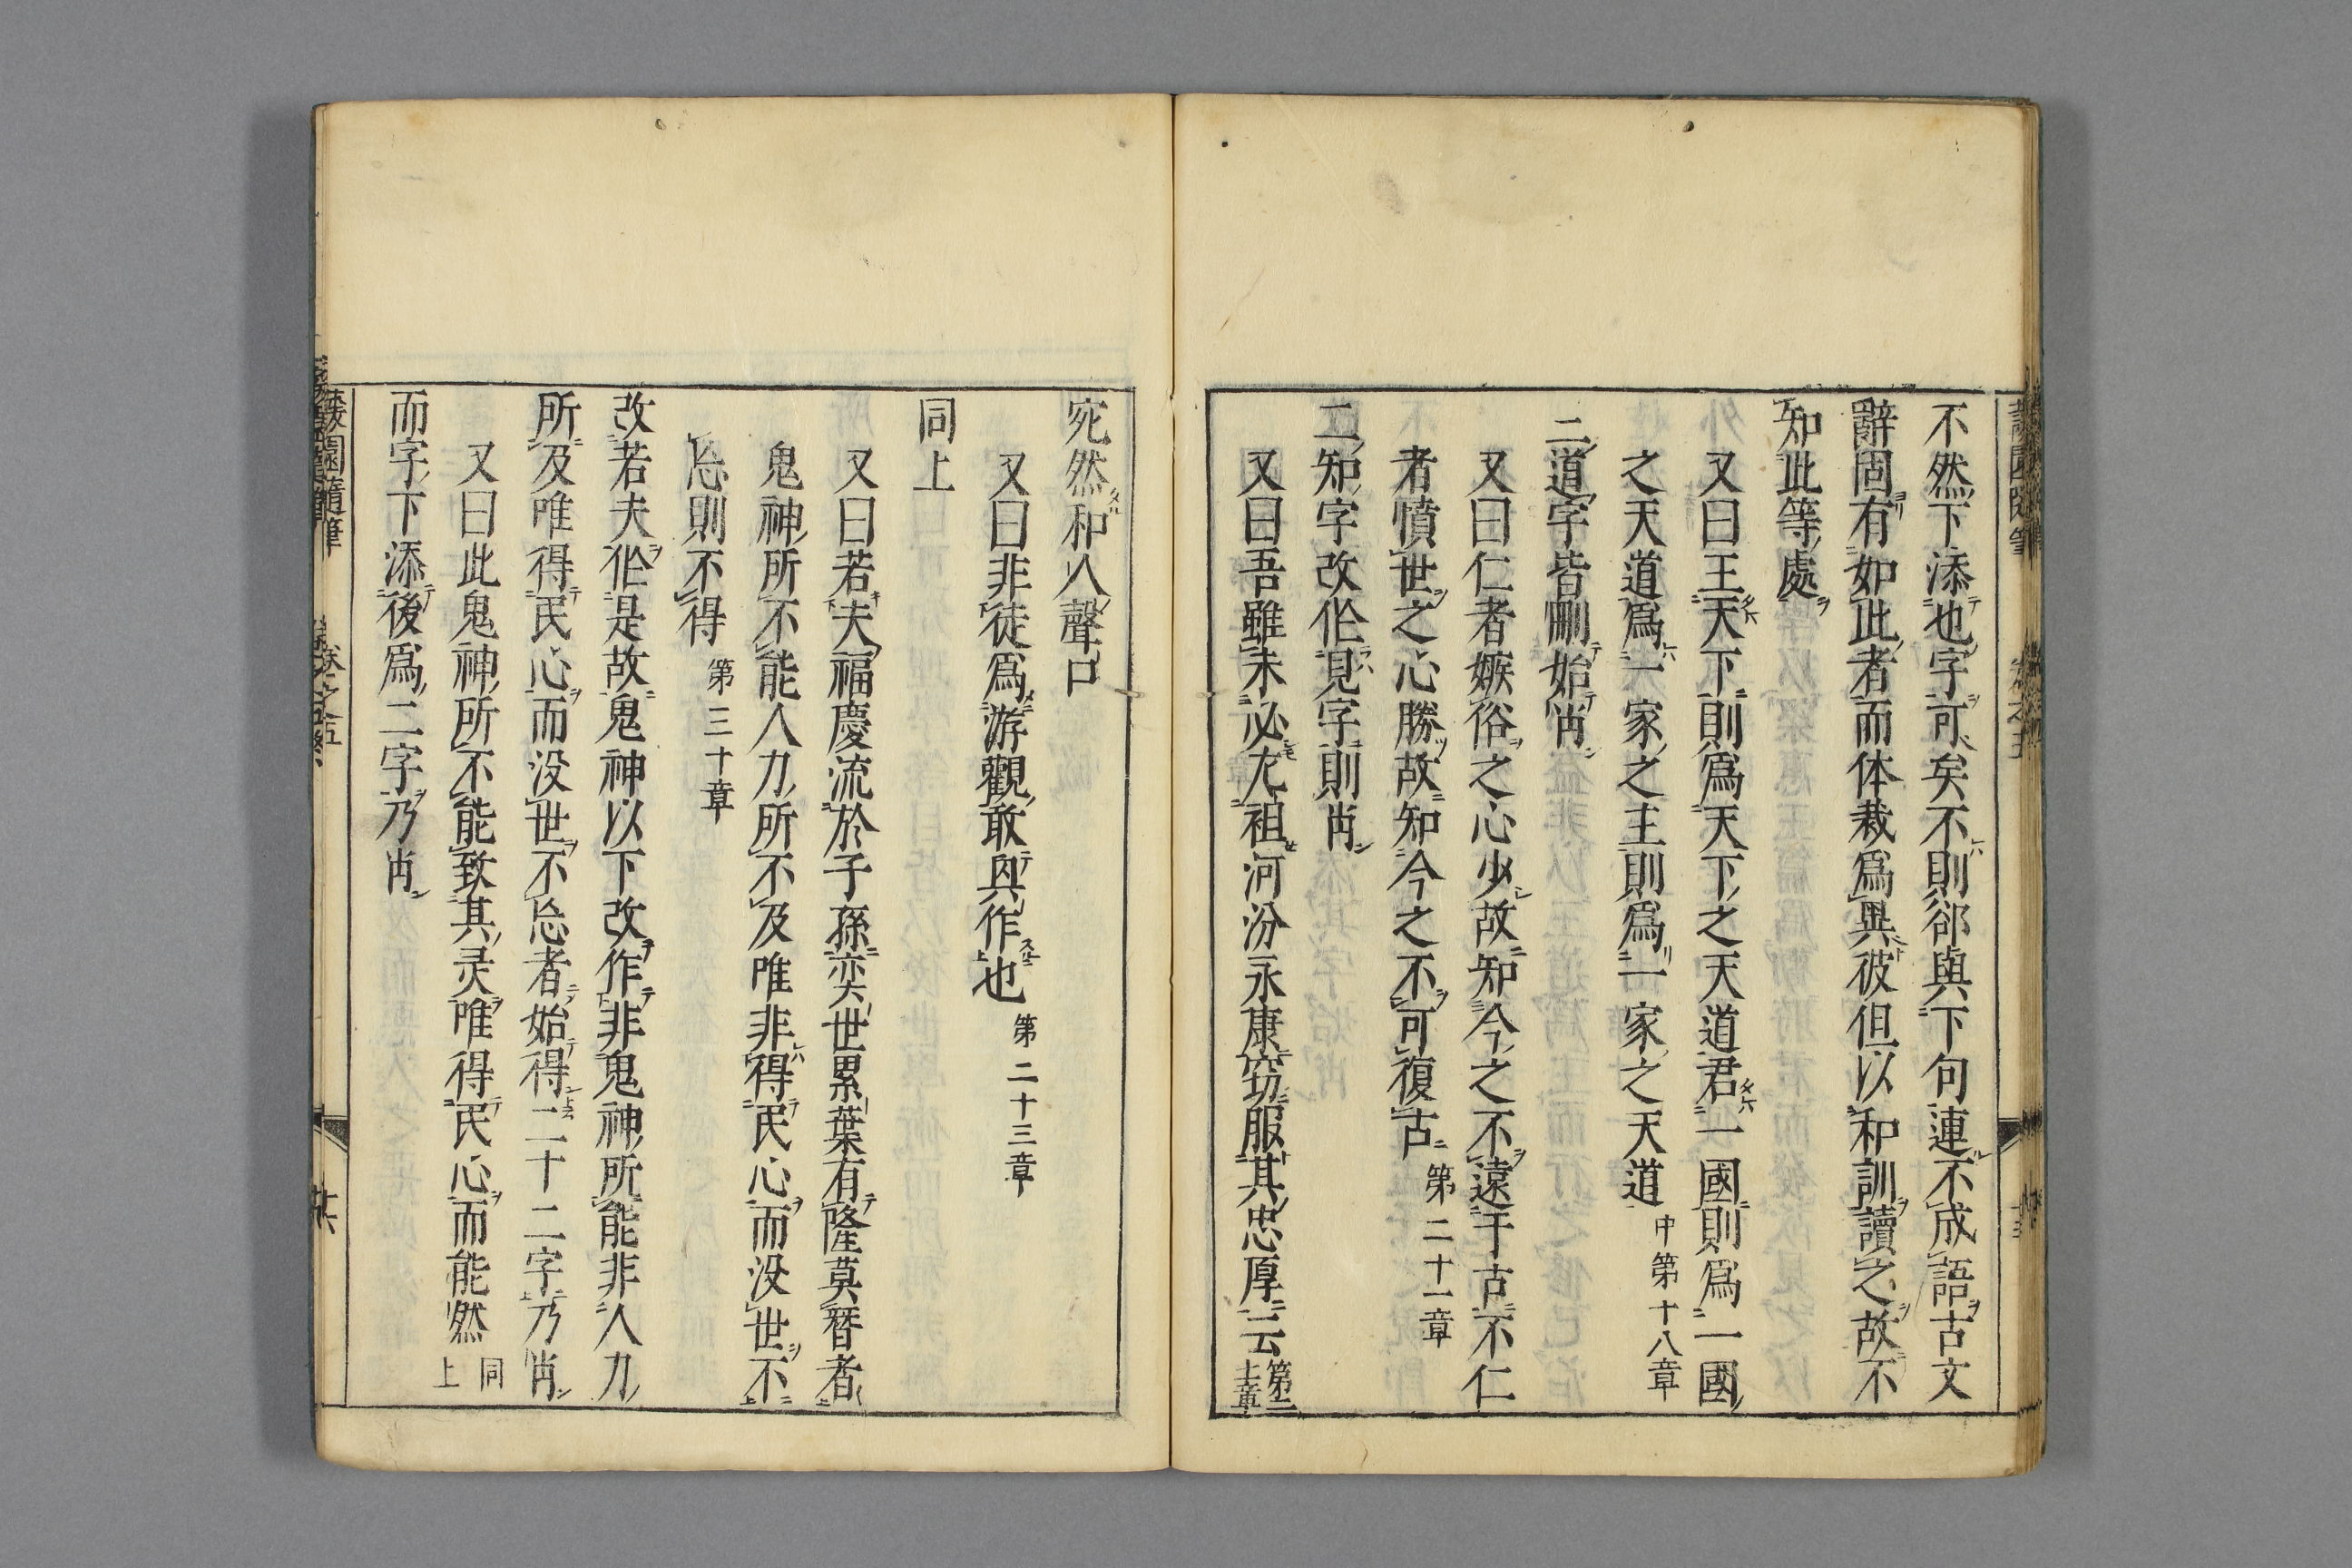 不然下添也字可矣不則卻與下句連不成語古文
辭固有如此者而体裁爲異彼但以和訓讀之故不
知此等處
又曰王天下則爲天下之天道君一國則爲一國
之天道爲一家之主則爲一家之天道 中第十八章
二道字皆刪始肖
又曰仁者嫉俗之心少故知今之不遠于古不仁
者憤世之心勝故知今之不可復古 第二十一章
二知字改作見字則肖
又曰吾雖未必尤祖河汾永康窃服其忠厚云
宛然和人聲口
又曰非徒爲游觀敢與作也 第二十三章
同上
又曰若夫福慶流於子孫奕世累葉有隆莫替者
鬼神所不能人力所不及唯非得民心而没世不
忘則不得 第三十章
改若夫作是故鬼神以下改作非鬼神所能非人力
所及唯得民心而没世不忘者始得二十二字乃肖
又曰此鬼神所不能致其灵唯得民心而能然 同上
而字下添後爲二字乃肖
蘐園隨筆 卷之五